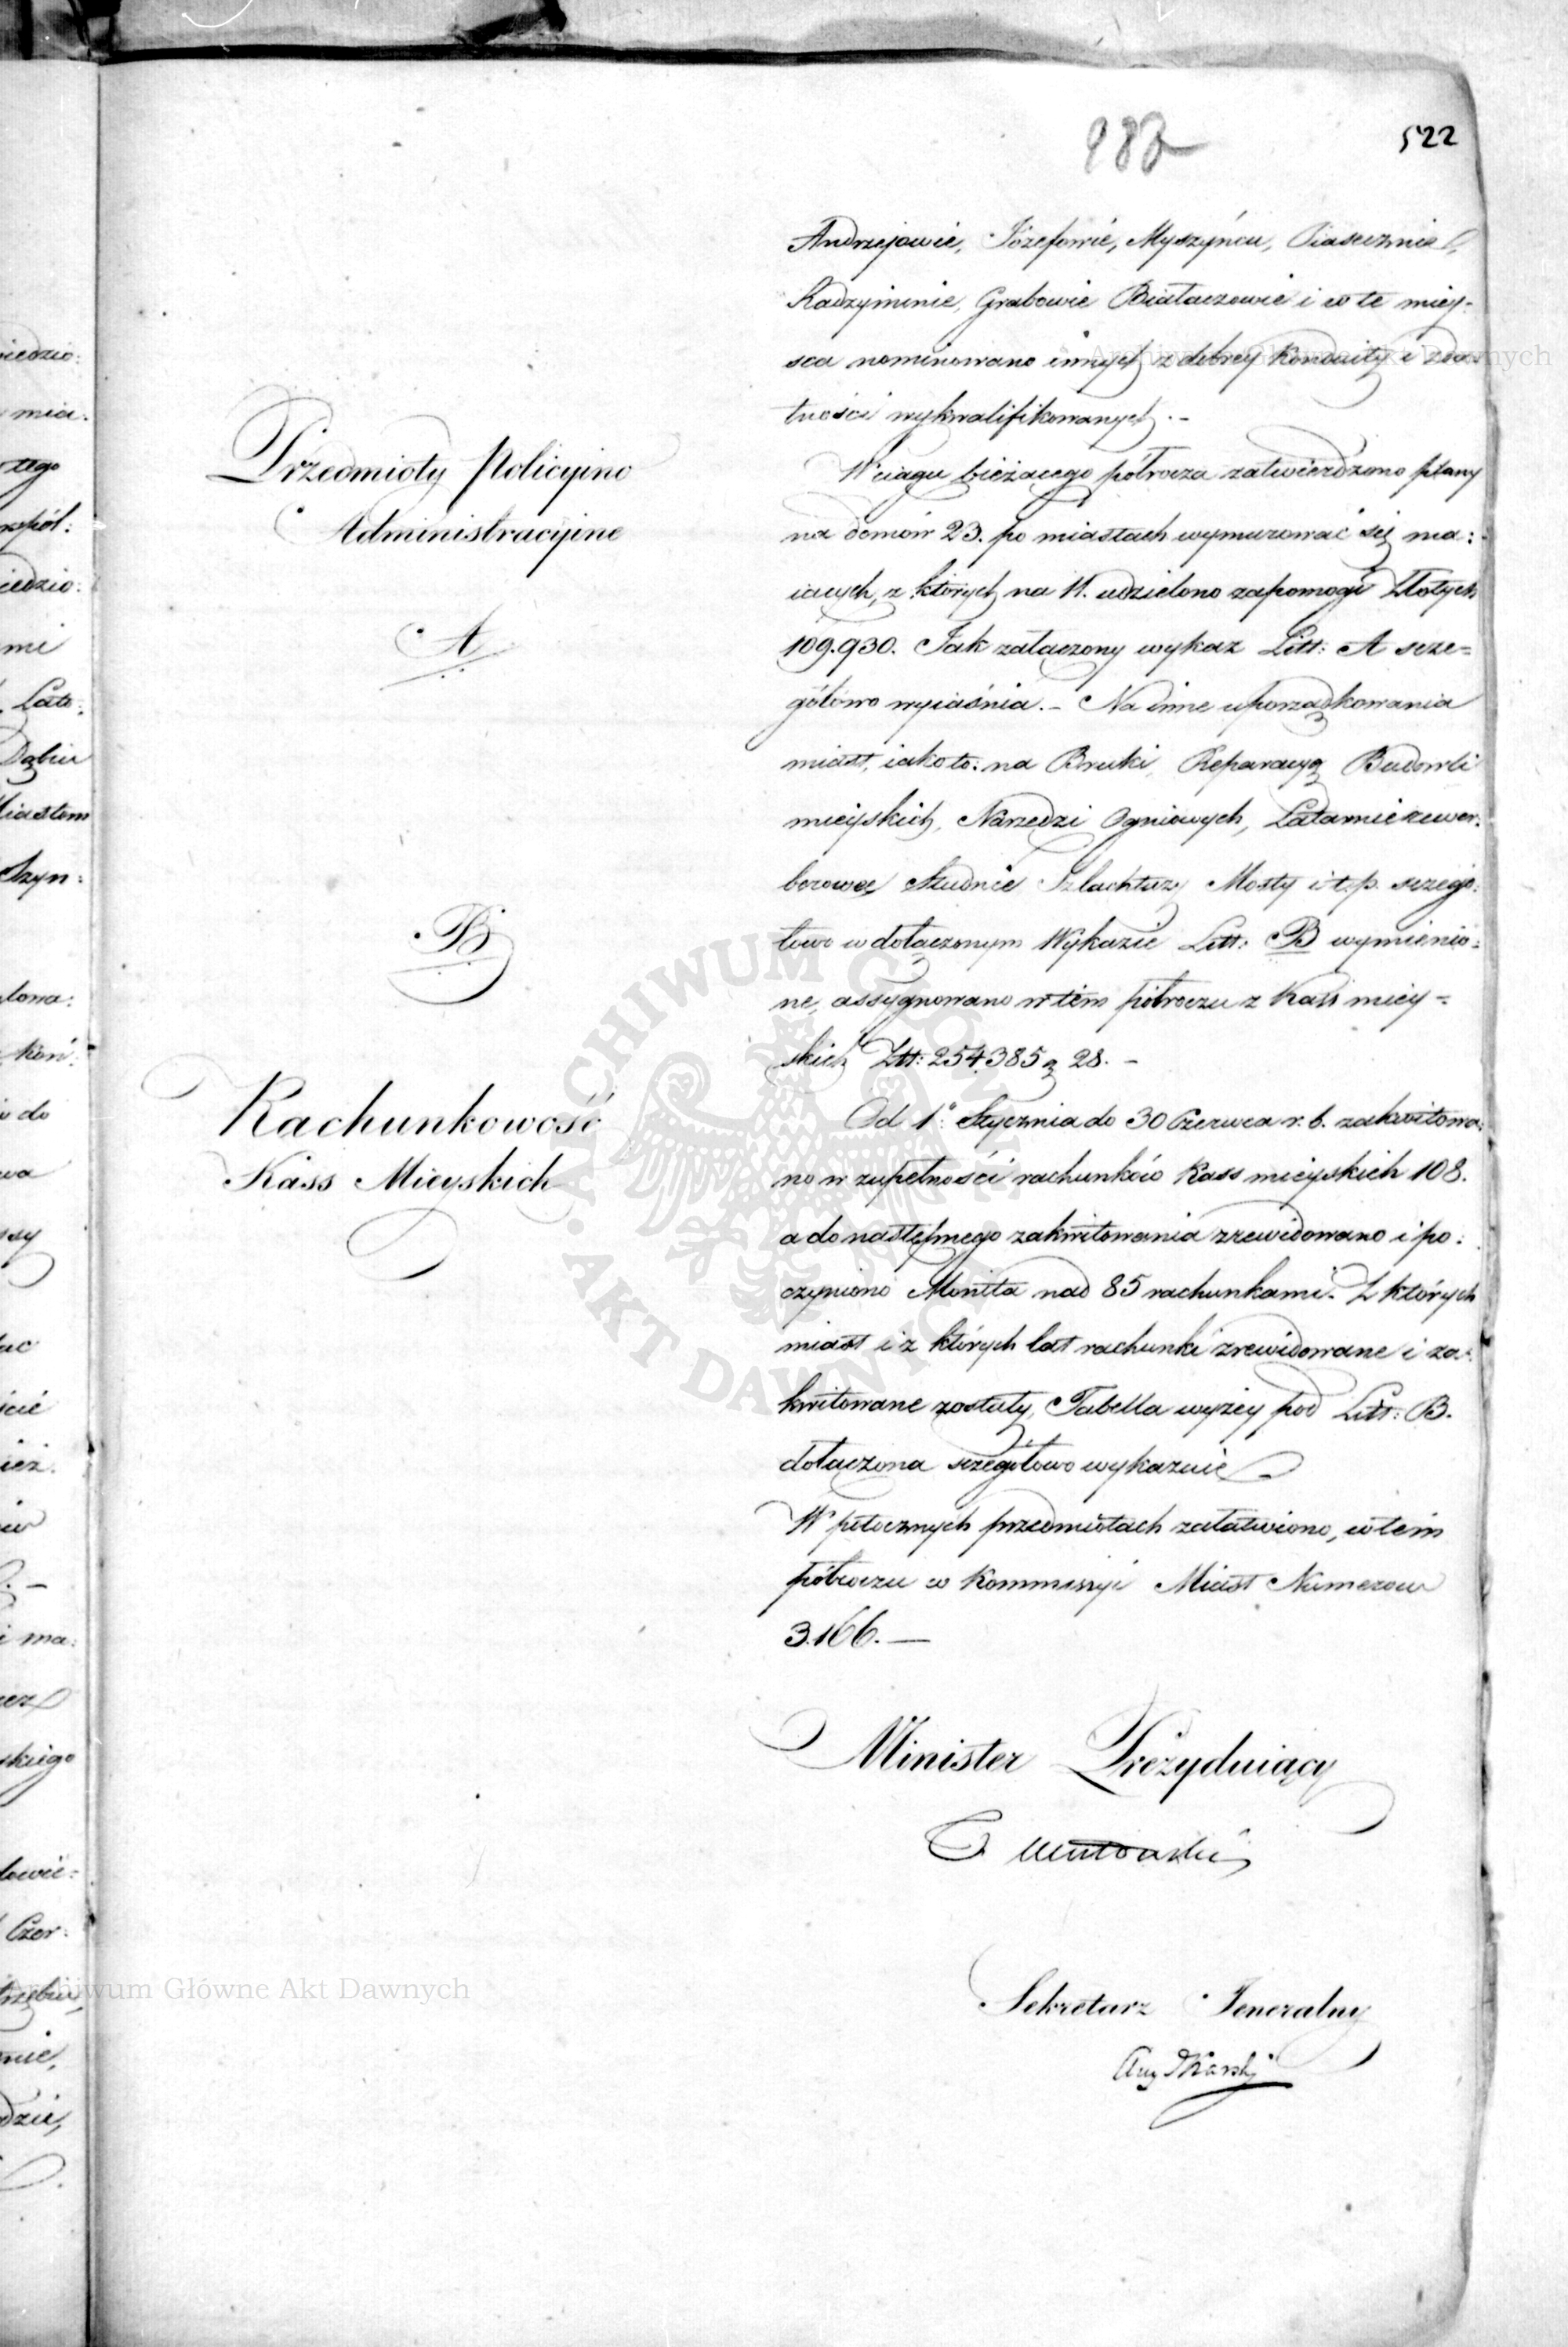 522
Andrzejowie, Józefowie, Myszyńcu, Piasecznie,
Radzyminie, Grabowie Białaczowie i w te miey-
sca nominowano innych z dobrey konduity i zda-
tności wykwalifikowanych. -
Przedmioty Policyino
Administracyine
W ciągu bieżącego półrocza zatwierdzono plany
na domów 23. po miastach wymurować się ma:
iących, z których na 11. udzielono zapomogi Złotych
A
109.930. Jak załączony wykaz Litt: A szcze=
gółowo wyiaśnia. - Na inne uporządkowania
miast, iako to: na Bruki, Reparacyą Budowli
mieyskich, Narzędzi Ogniowych, Latarnie rewer:
berowe, Studnie Szlachtuzy Mosty i t. p. szczegó:
B
łowo w dołączonym Wykazie Litt: B wymienio:
ne, assygnowano w tém półroczu z Kass miey=
skich Złt: 254.385 g 28. -
Rachunkowość
Kass Mieyskich
Od 1o. Stycznia do 30 Czerwca r. b. zakwitowa:
no w zupełności rachunków Kass mieyskich 108.
a do następnego zakwitowania zrewidowano i po:
czyniono Monita nad 85 rachunkami. Z których
miast i z których lat rachunki zrewidowane i za:
kwitowane zostały, Tabella wyżey pod Litt: B.
dołączona szczegółowo wykazuie
W potocznych przedmiotach załatwiono, w tém
półroczu w Kommissyi Miast Numerow
3.166. —
Minister Prezyduiący
Sekretarz Jeneralny
Aug Karski
Archiwum Główne Akt Dawnych
ARCHIWUM GŁÓWNE · AKT DAWNYCH ·